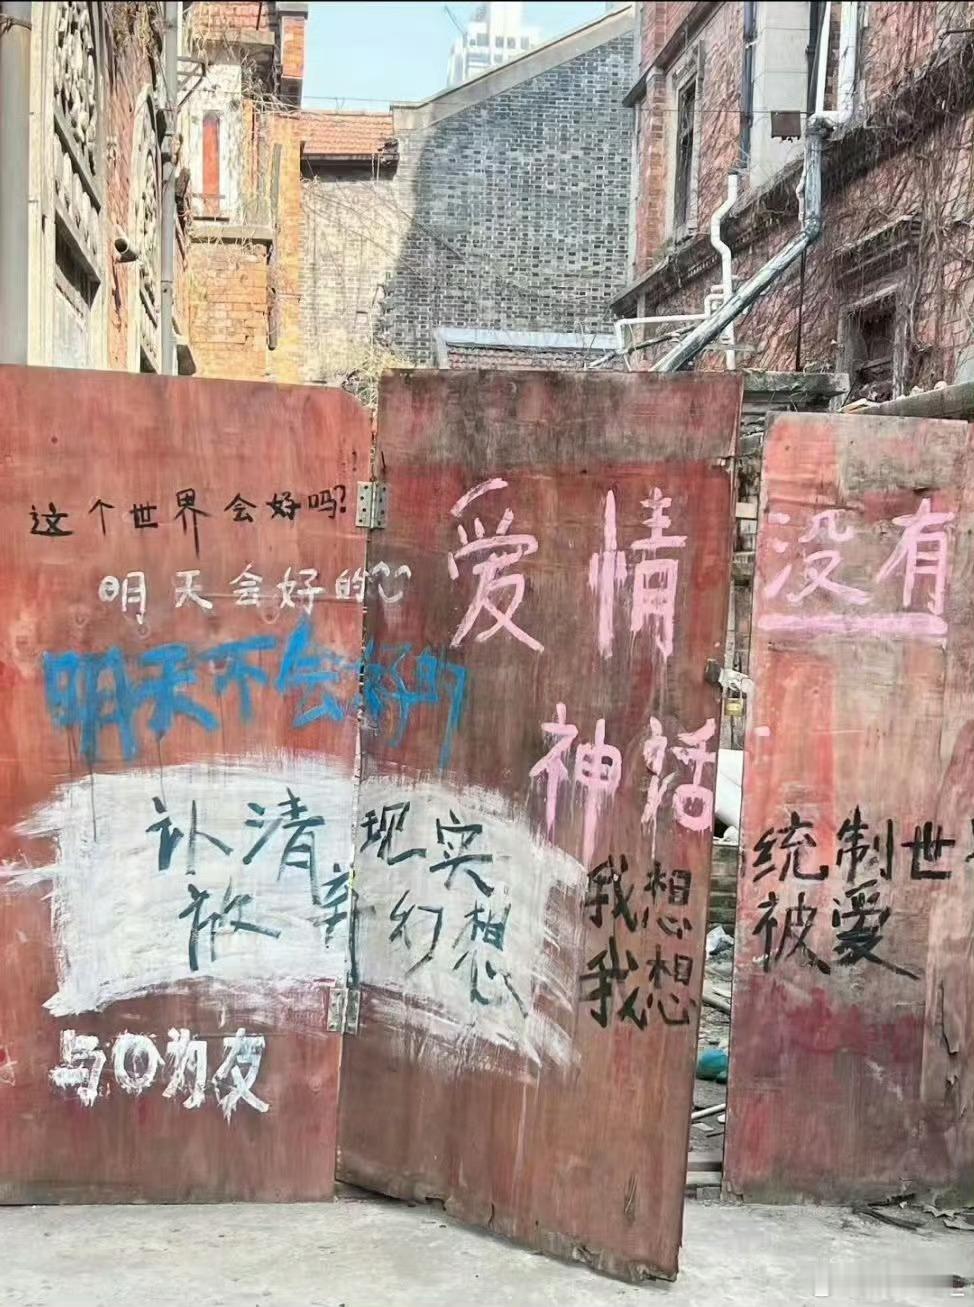 这个世界会好吗?
明天会好的
明天不会好的
认清现实
放弃幻想
与O为友
爱情没有
神话
我想统制世
我想被爱